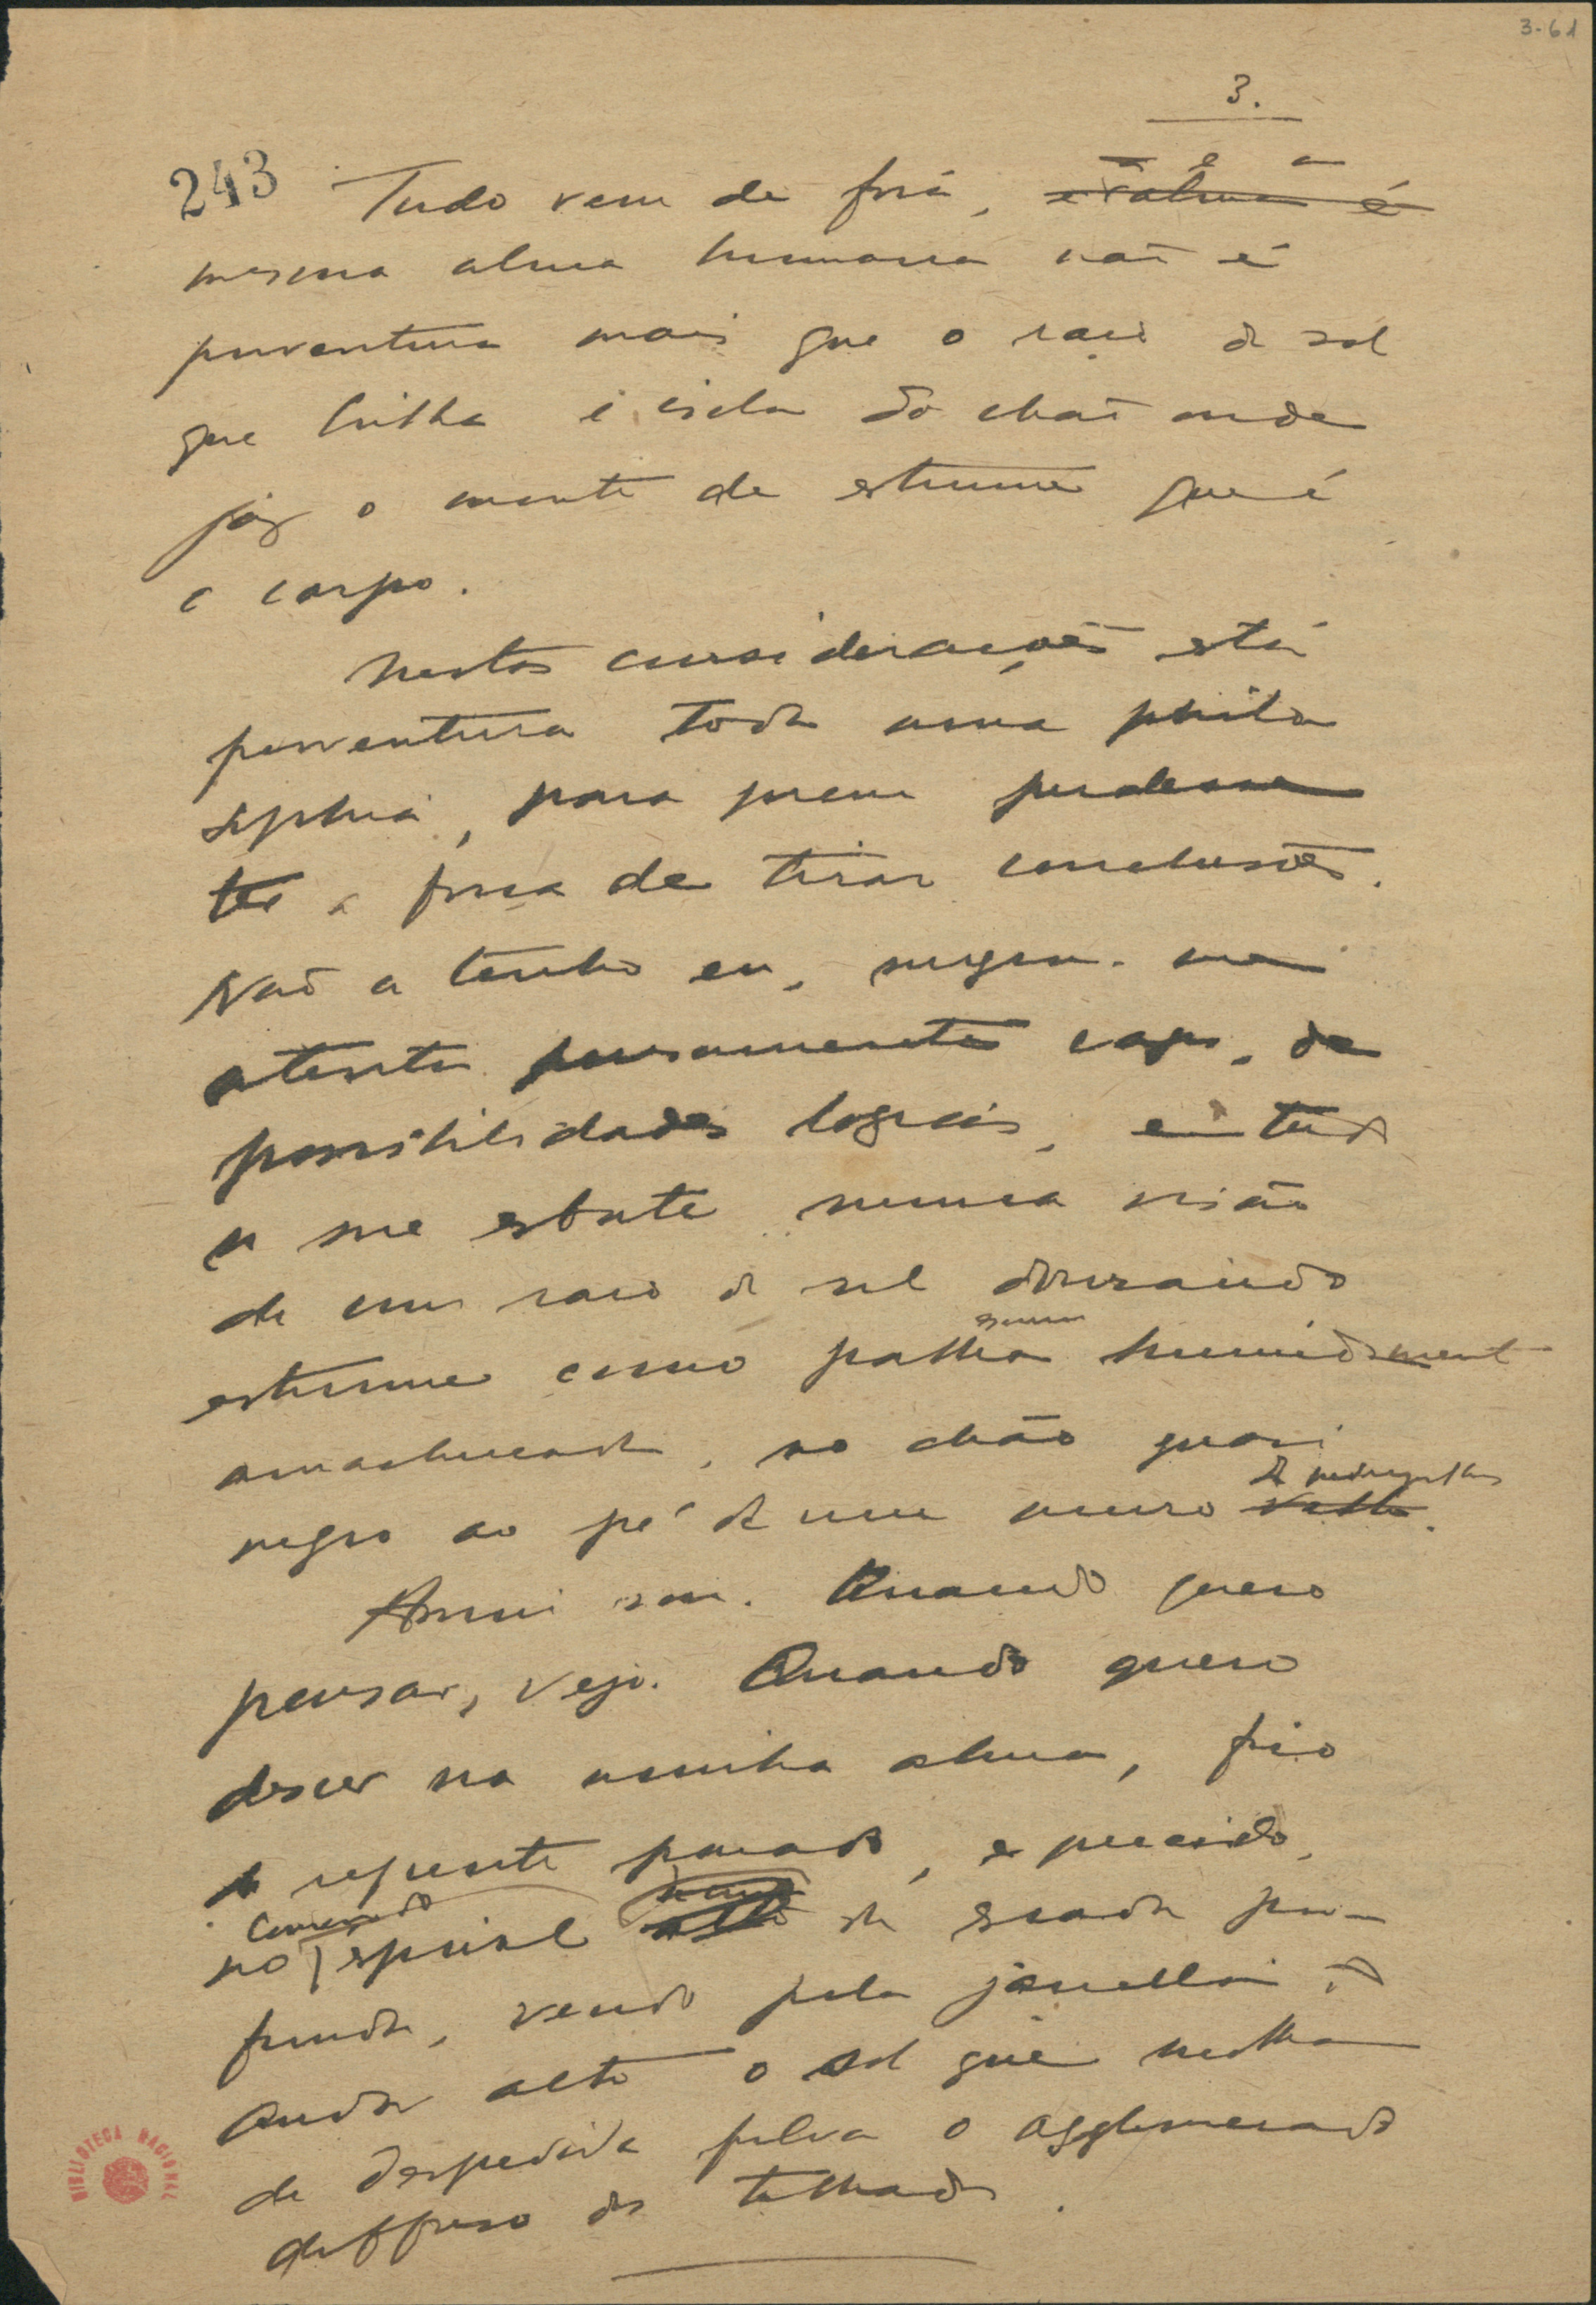 3-61
3.
243
Tudo vem de fóra, e a
e a alma é
mesma alma humana não é
porventura mais que o raio de sol
que brilha e isola do chão onde
jaz o monte de estrume que é
o corpo.
Nestas considerações está
porventura toda uma philo
sophia, para quem pudesse
ter a força de tirar conclusões.
Não a tenho eu, surgem-me
attentos pensamentos vagos, de
possibilidades logicas, e tudo
se me esbate numa visão
de um raio de sol dourando
estrume como palha escura humidamente
amachucada, no chão quasi
negro ao pé de um muro de pedregulhos
Assim sou. Quando quero
pensar, vejo. Quando quero
descer na minha alma, fico
de repente parado, esquecido,
no começo do espiral da escada pro-
funda, vendo pela janella do
andar alto o sol que molha
de despedida fulva o agglomerado
diffuso dos telhados.
BIBLIOTECA NACIONAL